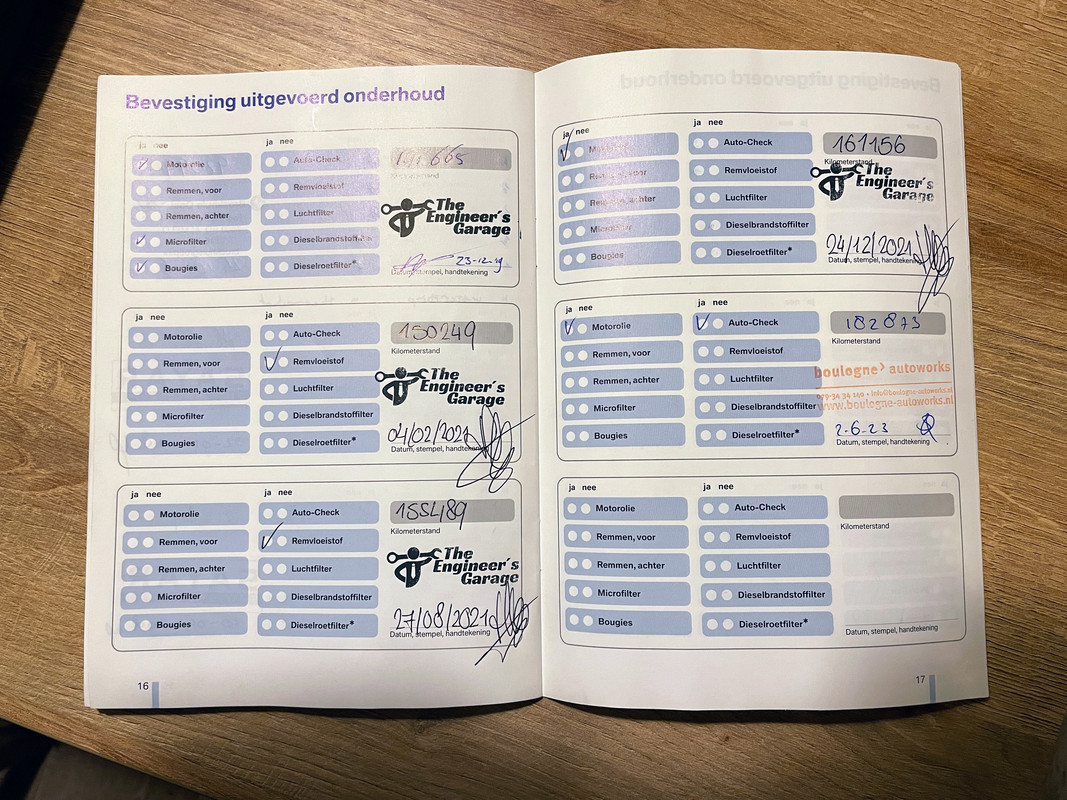 Bevestiging uitgevoerd onderhoud
ja nee
ja nee
Motorolie
Auto-Check
Remmen, voor
Remvloeistof
Kilometerstand
Remmen, achter
Luchtfilter
The Engineer's Garage
Microfilter
Dieselbrandstoffilter
Bougies
Dieselroetfilter*
23-12-19
Datum, stempel, handtekening
ja nee
ja nee
Motorolie
Auto-Check
150249
Remmen, voor
Remvloeistof
Kilometerstand
Remmen, achter
Luchtfilter
The Engineer's Garage
Microfilter
Dieselbrandstoffilter
Bougies
Dieselroetfilter*
04/02/2021
Datum, stempel, handtekening
ja nee
ja nee
Motorolie
Auto-Check
155489
Remmen, voor
Remvloeistof
Kilometerstand
Remmen, achter
Luchtfilter
The Engineer's Garage
Microfilter
Dieselbrandstoffilter
Bougies
Dieselroetfilter*
27/08/2021
Datum, stempel, handtekening
16
ja nee
ja nee
Motorolie
Auto-Check
161156
Remmen, voor
Remvloeistof
Kilometerstand
Remmen, achter
Luchtfilter
The Engineer's Garage
Microfilter
Dieselbrandstoffilter
Bougies
Dieselroetfilter*
24/12/2021
Datum, stempel, handtekening
ja nee
ja nee
Motorolie
Auto-Check
182873
Remmen, voor
Remvloeistof
Kilometerstand
Remmen, achter
Luchtfilter
boulogne> autoworks
079-34 34 110 • info@boulogne-autoworks.nl
Microfilter
Dieselbrandstoffilter
www.boulogne-autoworks.nl
Bougies
Dieselroetfilter*
2-6-23
Datum, stempel, handtekening
ja nee
ja nee
Motorolie
Auto-Check
Remmen, voor
Remvloeistof
Kilometerstand
Remmen, achter
Luchtfilter
Microfilter
Dieselbrandstoffilter
Bougies
Dieselroetfilter*
Datum, stempel, handtekening
17